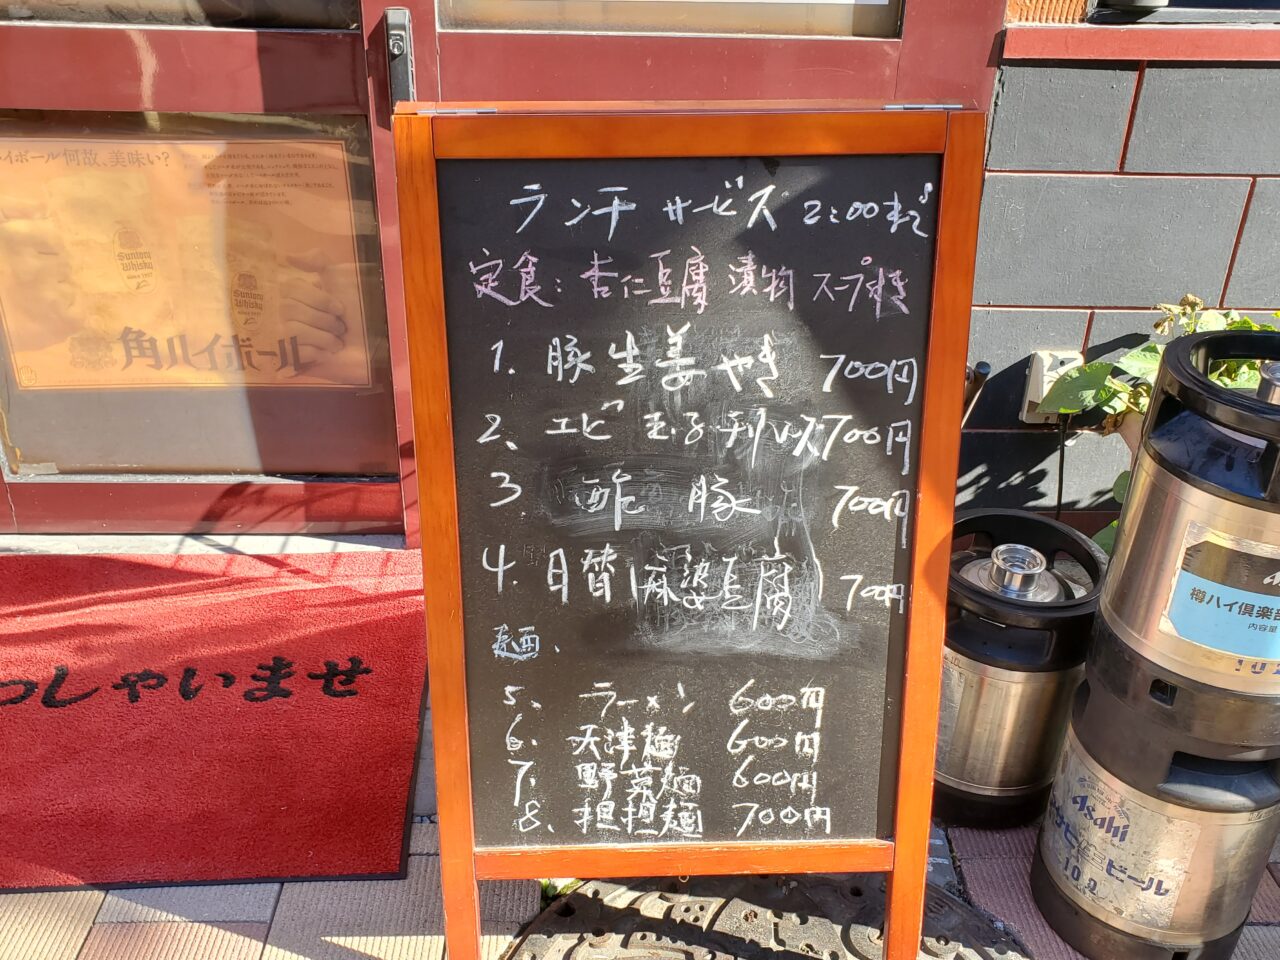 ランチサービス 2:00まで
定食: 杏仁豆腐 漬物 スープ付き
1. 豚生姜やき 700円
2、エビ玉子チリソース 700円
3 酢豚 700円
4. 日替(麻婆豆腐) 700円
麺、
5、ラーメン 600円
6. 天津麺 600円
7. 野菜麺 600円
8、担担麺 700円
イボール何故、美味い?
Suntory
Whisky
since 1937
Suntory
Whisky
角ハイボール
っしゃいませ
樽ハイ倶楽部
内容量
Asahi
アサヒビール
10ℓ